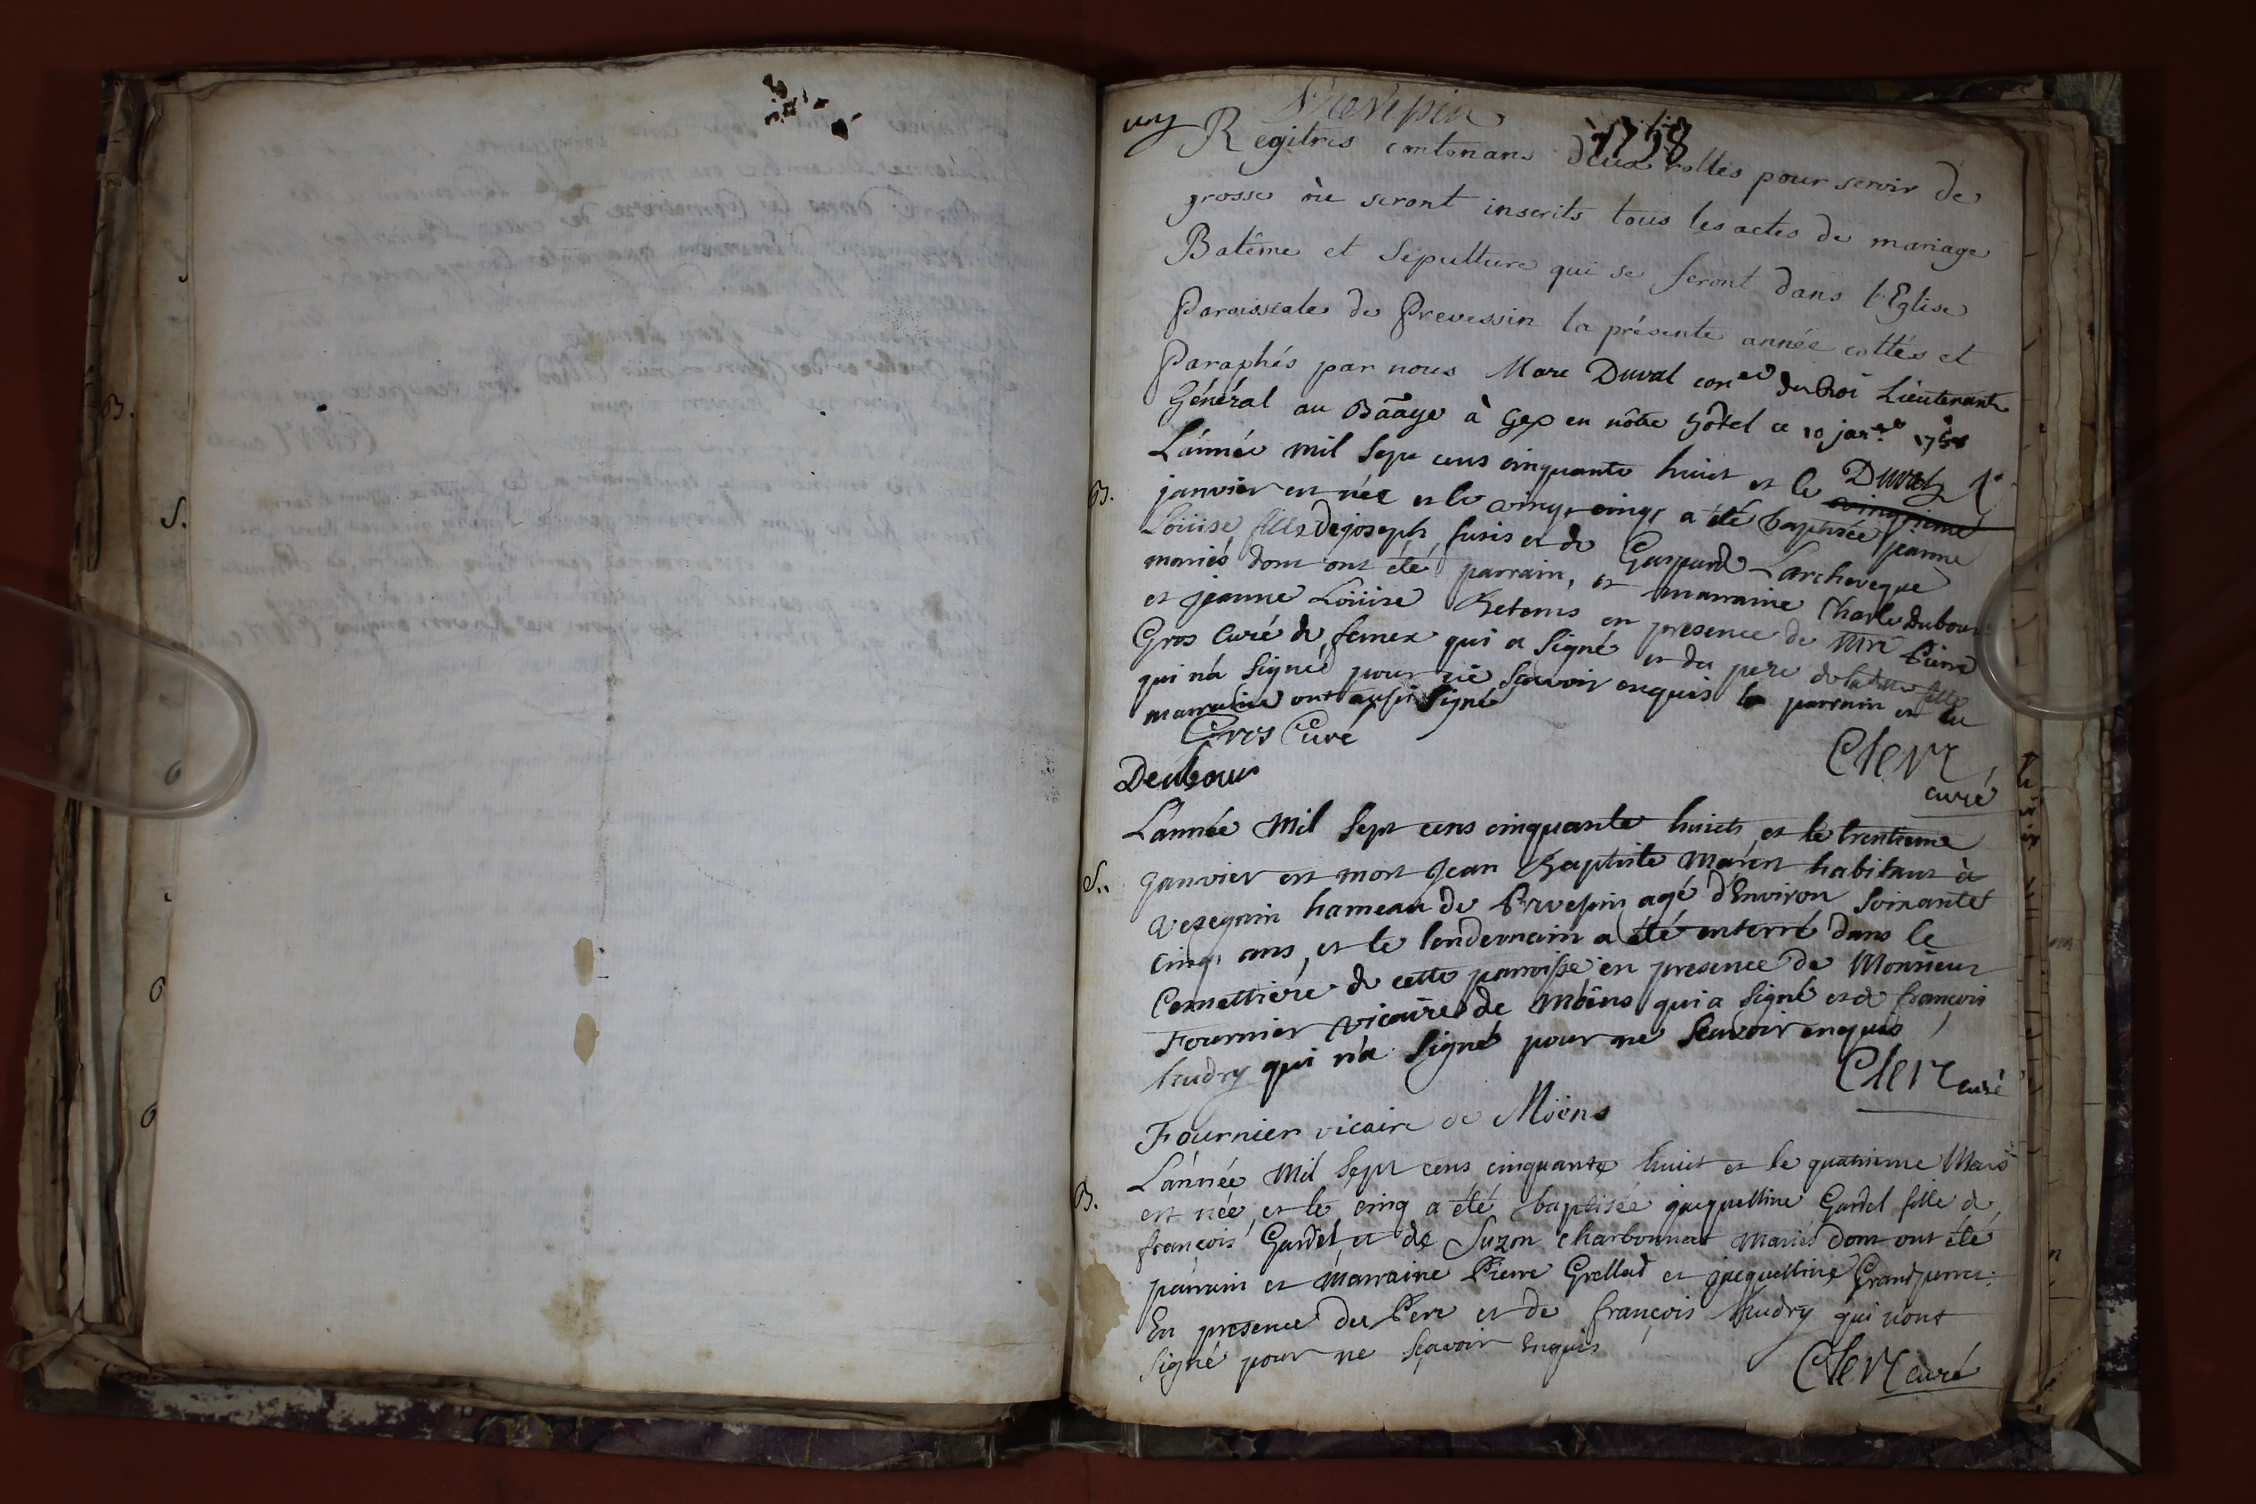 Prevepin
1758
un
Regitres contenans deux rolles pour servir de
grosse où seront inscrits tous les actes de mariage
Batême et Sépulture qui se feront dans l'Eglise
Paroissiale de Prevessin la présente année cottés et
Paraphés par nous Marc Duval con.er du Roi Lieutenant
Général au Baãge à Gex en nôtre hôtel ce 10 jan.er 1758
Duval
L'année mil sept cens cinquante huit et le
B.
janvier est née et le cinq a été baptisée jeanne
Loüise fille de joseph fusis et de Gaspard Larcheveque
mariés dont ont été parrain, et marraine Charle Dubous
et jeanne Loüise Betems en presence de Mre Pierre
Gros Curé de fernex qui a signé et du pere de la ditte fille
qui n'a signé pour ne sçavoir enquis le parrain et la
marraine ont aussi signé
Gros Curé
Cler
curé
Deubous
L'année Mil Sept cens cinquante huict, et le trentieme
S.
Janvier est mort Jean Baptiste Marin habitant à
Vesegnin hameau de Prevepin agé d'Environ soixante
cinq ans, et le lendemain a été enterré dans le
Cemettiére de cette parroisse en presence de Monsieur
Fournier Vicaire de Möens qui a signé et de françois
hudry qui n'a signé pour ne sçavoir enquis
Cler curé
Fournier vicaire de Möens
L'année Mil Sept cens cinquante huict et le quatrieme Mars
B.
est née et le cinq a été baptisée jacquelline Gardel fille de
françois Gardel et de Suzon Charbonnet mariés dont ont été
parrain et marraine Pierre Grellud et jacquelline Grandperret.
En presence du Pere et de françois hudry qui n'ont
signé pour ne sçavoir Enquis
Cler curé
B.
S.